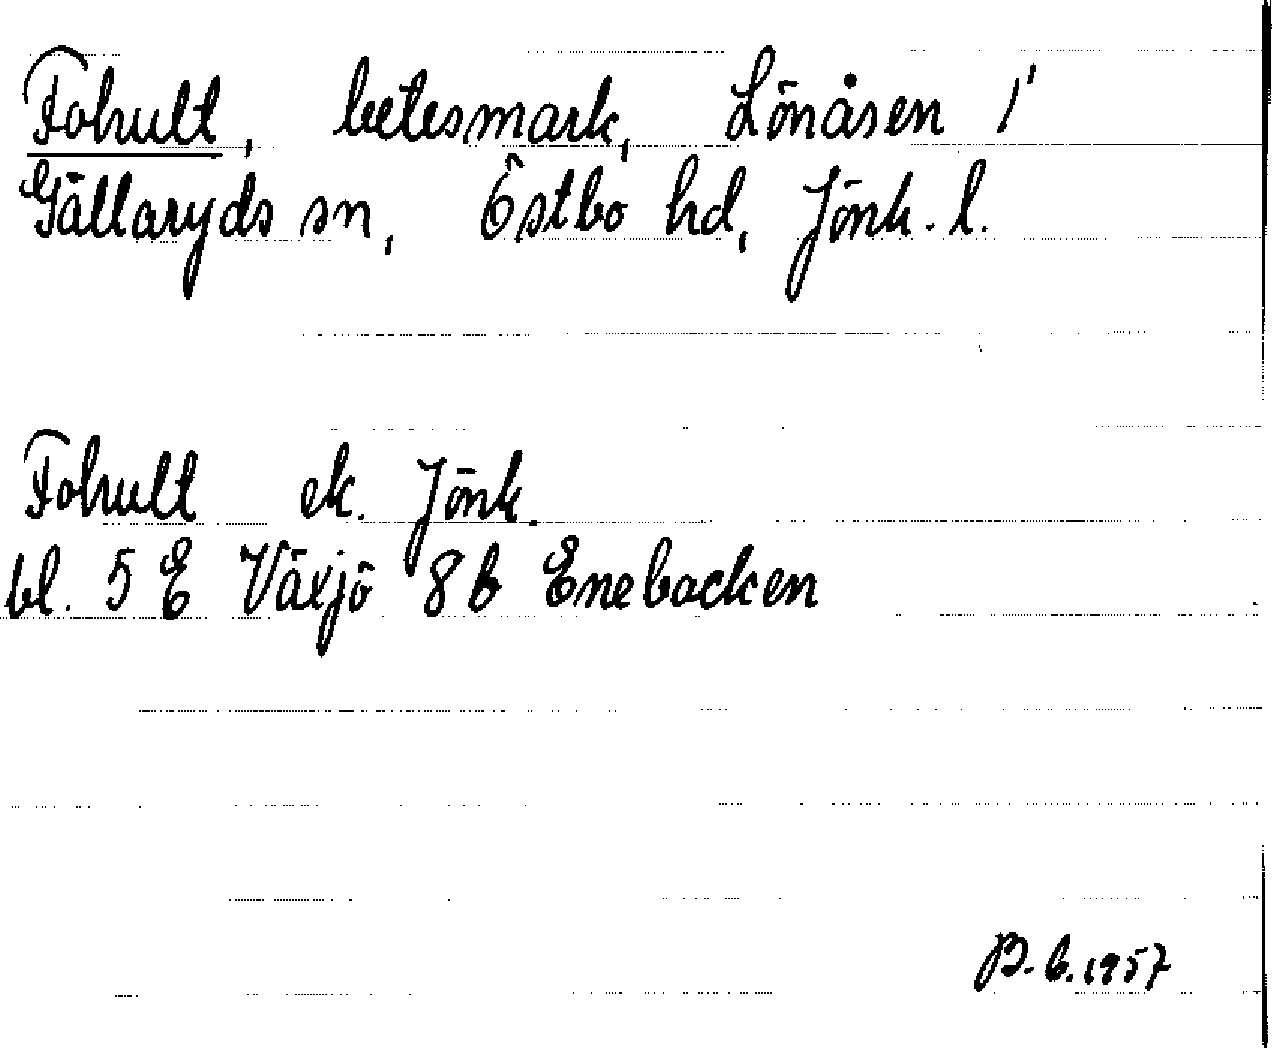 Fohult, betesmark, Lönåsen 1¹
Gällaryds sn, Östbo hd, Jönk. l.
Fohult ek. Jönk.
bl. 5 E Växjö 8 b Enebacken
B. b. 1957